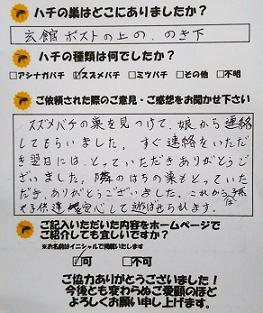 ハチの巣はどこにありましたか？
玄館ポストの上の、のき下
ハチの種類は何でしたか？
□アシナガバチ ☑スズメバチ □ミツバチ □その他 □不明
ご依頼された際のご意見・ご感想をお聞かせ下さい
スズメバチの巣を見つけて、娘から連絡
してもらいました。すぐ連絡をいただ
き翌日には、とっていただきありがとうご
ざいました。隣のはちの巣もとっていた
だき、ありがとうございました。これから孫
や子供達が安心して遊ばせられます。
ご記入いただいた内容をホームページで
ご紹介しても宜しいですか？
※お名前はイニシャルで掲載いたします
☑可 □不可
ご協力ありがとうございました！
今後とも変わらぬご愛顧のほど
よろしくお願い申し上げます。